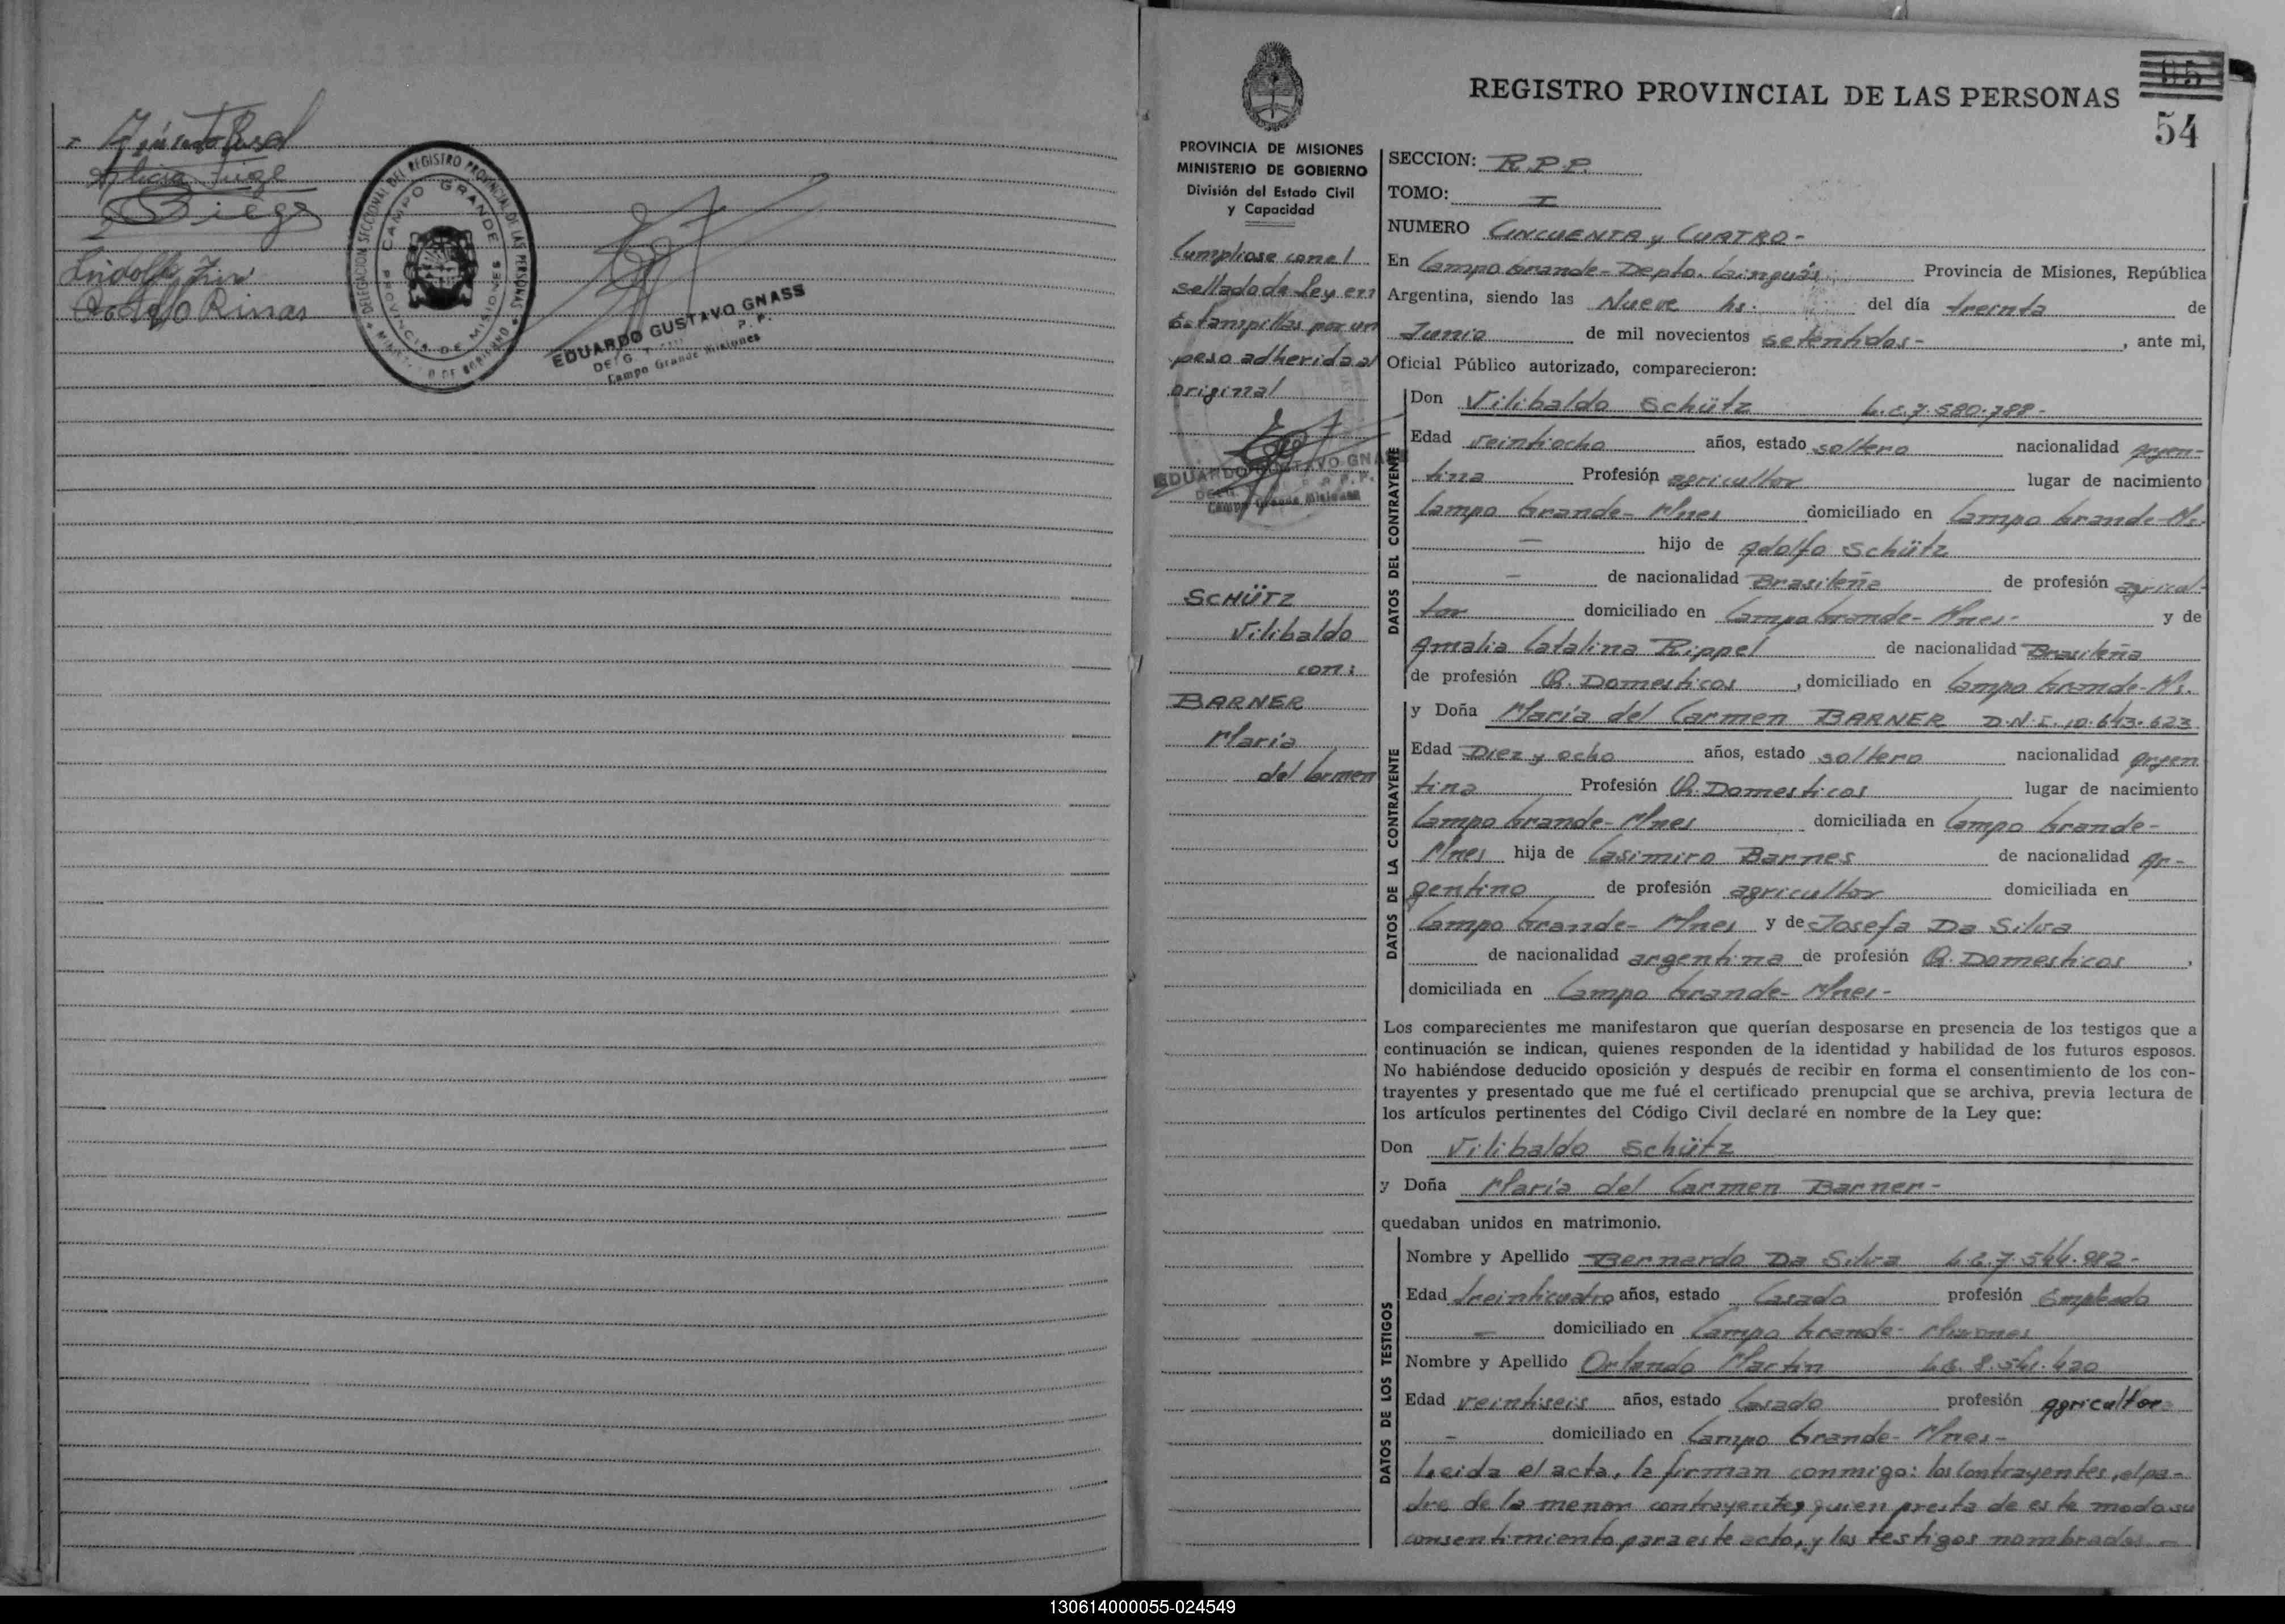 Alicia Fiege
Fiege
Rodolfo Rinas
DELEGACION SECCIONAL DEL REGISTRO PROVINCIAL DE LAS PERSONAS
CAMPO GRANDE
PROVINCIA DE MISIONES
EDUARDO GUSTAVO GNASS
Campo Grande Misiones
REGISTRO PROVINCIAL DE LAS PERSONAS
54
PROVINCIA DE MISIONES
MINISTERIO DE GOBIERNO
División del Estado Civil
y Capacidad
Cumpliose con el
sellado de ley en
Estampillas por un
peso adherida al
original
EDUARDO GUSTAVO GNASS
Campo Grande Misiones
SCHÜTZ
Vilibaldo
con:
BARNER
María
del Carmen
SECCION: R.P.P.
TOMO: I
NUMERO CINCUENTA y CUATRO-
En Campo Grande- Depto. Cainguás Provincia de Misiones, República
Argentina, siendo las Nueve hs. del día treinta de
Junio de mil novecientos setentidos- , ante mi,
Oficial Público autorizado, comparecieron:
DATOS DEL CONTRAYENTE
Don Vilibaldo Schütz L.E.7.580.788-
Edad veintiocho años, estado soltero nacionalidad argen-
tina Profesión agricultor lugar de nacimiento
Campo Grande- Mnes domiciliado en Campo Grande-Ms.
- hijo de Adolfo Schütz
- de nacionalidad Brasileña de profesión agricul-
tor domiciliado en Campo Grande- Mnes- y de
Amalia Catalina Rippel de nacionalidad Brasileña
de profesión Q. Domesticos , domiciliado en Campo Grande-Ms.
DATOS DE LA CONTRAYENTE
y Doña María del Carmen BARNER D.N.I. 10.643.623
Edad Diez y ocho años, estado soltera nacionalidad argen
tina Profesión Q. Domesticos lugar de nacimiento
Campo Grande- Mnes domiciliada en Campo Grande-
Mnes hija de Casimiro Barnes de nacionalidad Ar-
gentino de profesión agricultor domiciliada en
Campo Grande- Mnes y de Josefa Da Silva
de nacionalidad argentina de profesión Q. Domesticos ,
domiciliada en Campo Grande- Mnes-
Los comparecientes me manifestaron que querían desposarse en presencia de los testigos que a
continuación se indican, quienes responden de la identidad y habilidad de los futuros esposos.
No habiéndose deducido oposición y después de recibir en forma el consentimiento de los con-
trayentes y presentado que me fué el certificado prenupcial que se archiva, previa lectura de
los artículos pertinentes del Código Civil declaré en nombre de la Ley que:
Don Vilibaldo Schütz
y Doña María del Carmen Barner-
quedaban unidos en matrimonio.
DATOS DE LOS TESTIGOS
Nombre y Apellido Bernardo Da Silva L.E.7.544.982-
Edad treinticuatro años, estado Casado profesión Empleado
- domiciliado en Campo Grande- Misiones
Nombre y Apellido Orlando Martin L.E. 8.541.420
Edad veintiseis años, estado Casado profesión agricultor-
- domiciliado en Campo Grande- Mnes-
Leída el acta, la firman conmigo: los contrayentes, el pa-
dre de la menor contrayente, quien presta de este modo su
consentimiento para este acto, y los testigos nombrados-
130614000055-024549